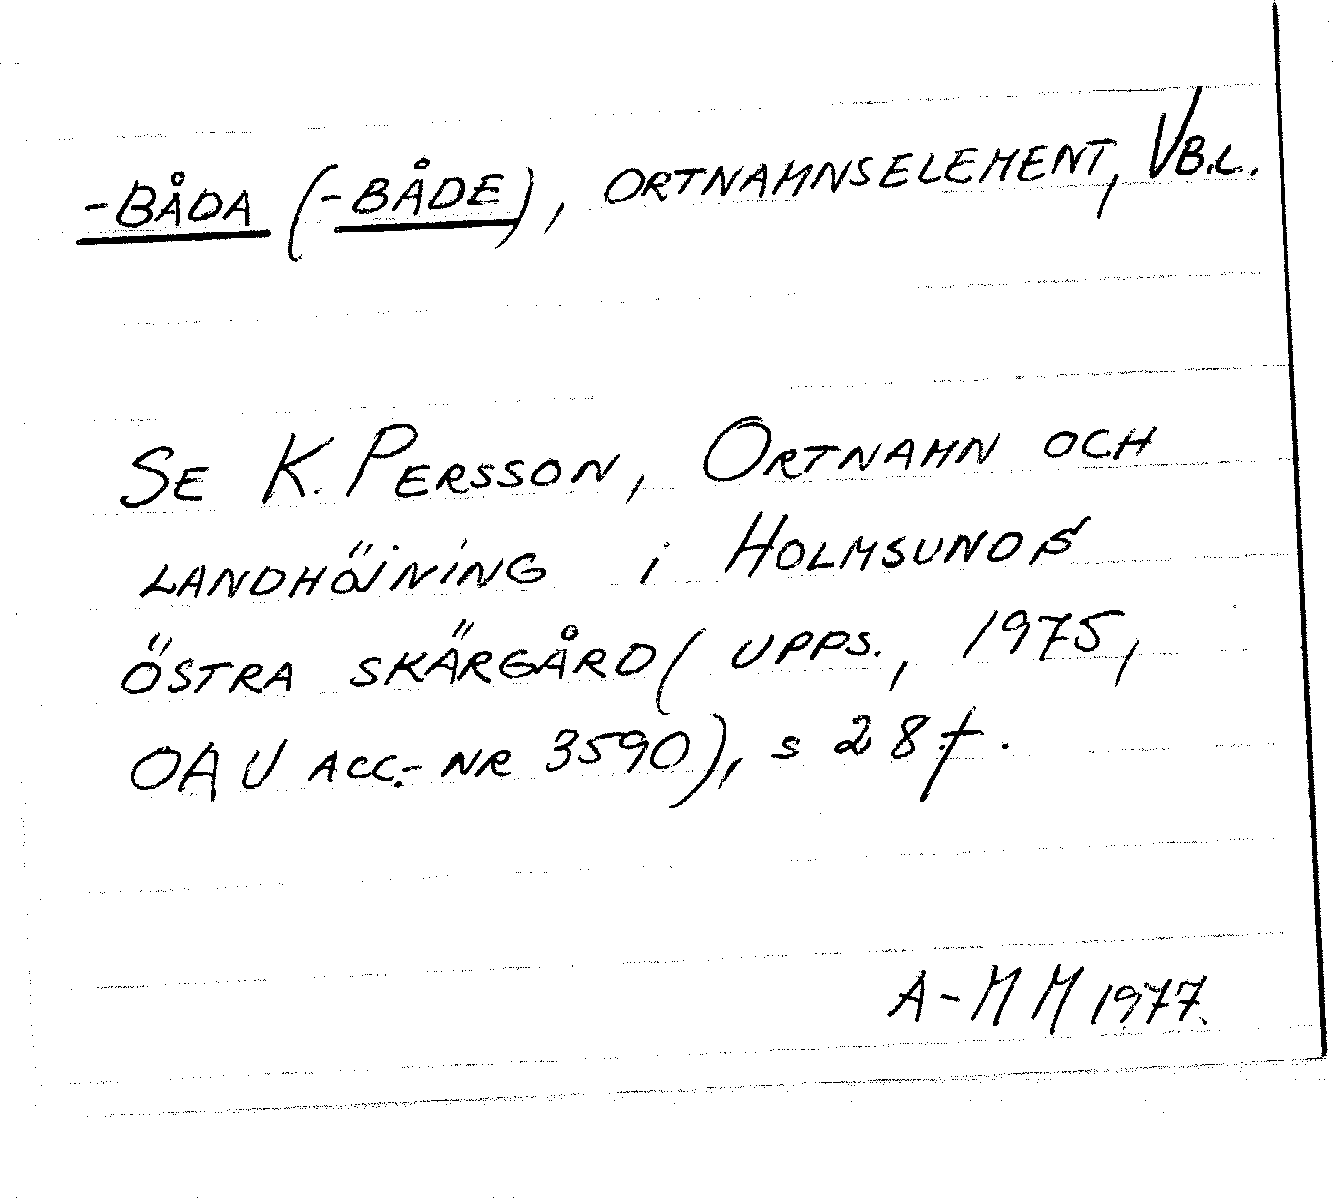 -BÅDA (-BÅDE), ORTNAMNSELEMENT, VB.L.
SE K. PERSSON, ORTNAMN OCH
LANDHÖJNING i HOLMSUNDS
ÖSTRA SKÄRGÅRD (UPPS., 1975,
OAU ACC.-NR 3590), s 28 f.
A-MM 1977.